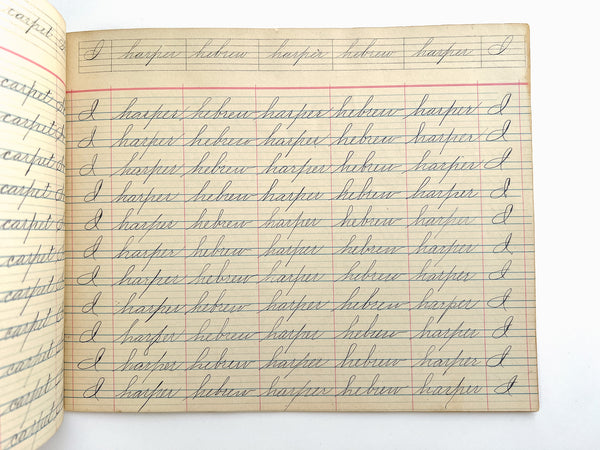 carpet
carpet
carpet
carpet
carpet
carpet
carpet
carpet
carpet
carpet
carpet
carpet
I harper hebrew harper hebrew harper I
I harper hebrew harper hebrew harper I
I harper hebrew harper hebrew harper I
I harper hebrew harper hebrew harper I
I harper hebrew harper hebrew harper I
I harper hebrew harper hebrew harper I
I harper hebrew harper hebrew harper I
I harper hebrew harper hebrew harper I
I harper hebrew harper hebrew harper I
I harper hebrew harper hebrew harper I
I harper hebrew harper hebrew harper I
I harper hebrew harper hebrew harper I